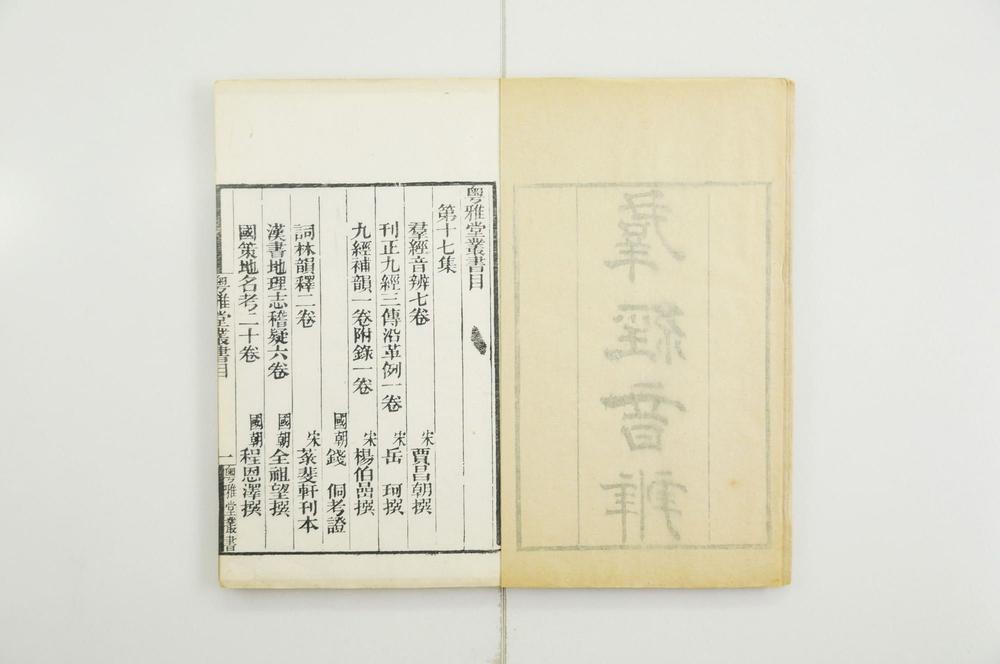 羣經音辨
粵雅堂叢書目
第十七集
羣經音辨七卷 宋 賈昌朝撰
刊正九經三傳沿革例一卷 宋 岳珂撰
九經補韻一卷附錄一卷 宋 楊伯嵒撰
國朝 錢侗考證
詞林韻釋二卷 宋 菉斐軒刊本
漢書地理志稽疑六卷 國朝 全祖望撰
國策地名考二十卷 國朝 程恩澤撰
粵雅堂叢書目 一 粵雅堂叢書